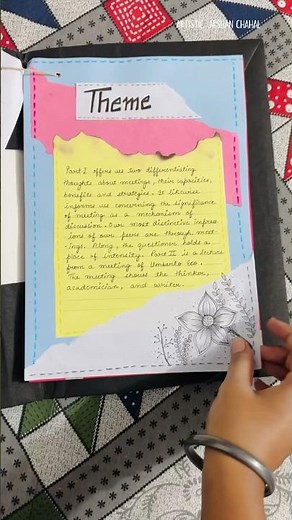 ARTISTIC_JASHAN CHAHAL
Theme
Part I offers us two differentiating
thoughts about meetings, their capacities,
benefits and strategies. It likewise
informs us concerning the significance
of meeting as a mechanism of
discussion. Our most distinctive impress
ions of our peers are through meet
-ings. Along, the questioner holds a
place of intensity. Part II is a lecture
from a meeting of Umberto Eco.
The meeting shows the thinker,
academician, and writer.